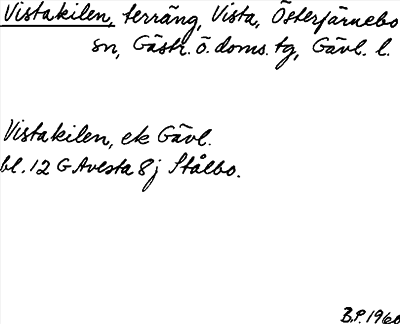 Vistakilen, terräng, Vista, Österjärnebo
sn, Gästr. ö. doms. tg, Gävl. l.
Vistakilen, ek Gävl.
bl. 12 G Avesta 8j Stålbo.
B.P. 1960